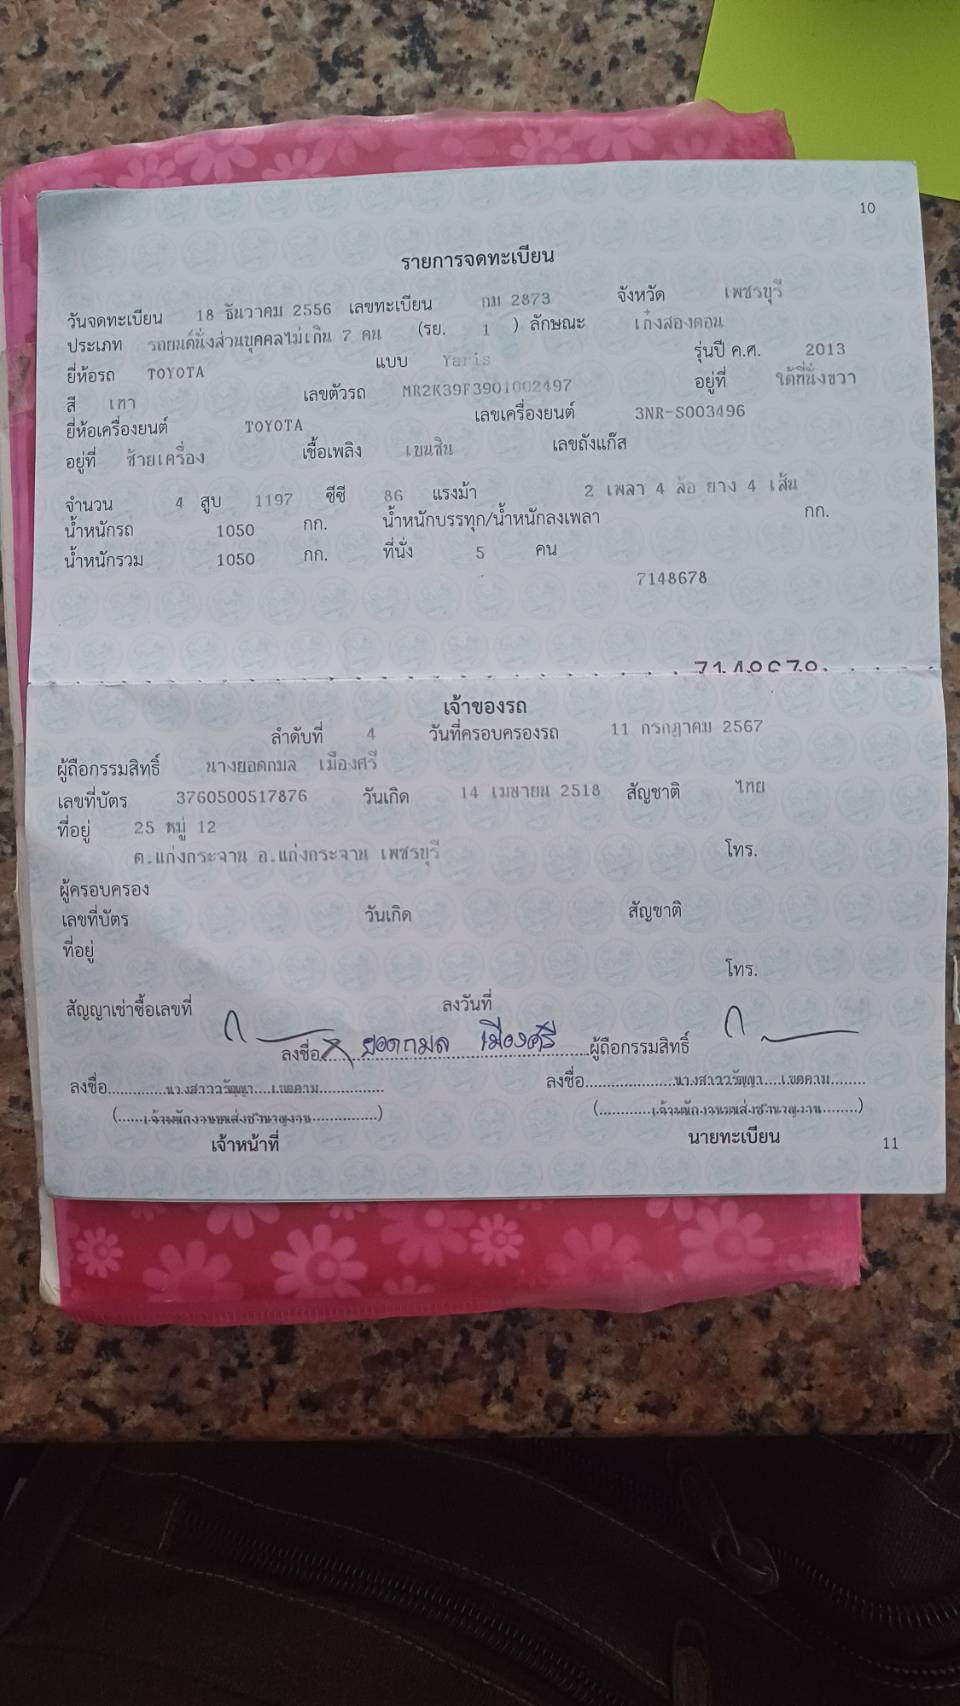 10
รายการจดทะเบียน
วันจดทะเบียน 18 ธันวาคม 2556 เลขทะเบียน กม 2873 จังหวัด เพชรบุรี
ประเภท รถยนต์นั่งส่วนบุคคลไม่เกิน 7 คน (รย. 1 ) ลักษณะ เก๋งสองตอน
ยี่ห้อรถ TOYOTA แบบ Yaris รุ่นปี ค.ศ. 2013
สี เทา เลขตัวรถ MR2K39F3901002497 อยู่ที่ ใต้ที่นั่งขวา
ยี่ห้อเครื่องยนต์ TOYOTA เลขเครื่องยนต์ 3NR-S003496
อยู่ที่ ซ้ายเครื่อง เชื้อเพลิง เบนซิน เลขถังแก๊ส
จำนวน 4 สูบ 1197 ซีซี 86 แรงม้า 2 เพลา 4 ล้อ ยาง 4 เส้น
น้ำหนักรถ 1050 กก. น้ำหนักบรรทุก/น้ำหนักลงเพลา กก.
น้ำหนักรวม 1050 กก. ที่นั่ง 5 คน
7148678
7148678
เจ้าของรถ
ลำดับที่ 4 วันที่ครอบครองรถ 11 กรกฎาคม 2567
ผู้ถือกรรมสิทธิ์ นางยอดกมล เมืองศรี
เลขที่บัตร 3760500517876 วันเกิด 14 เมษายน 2518 สัญชาติ ไทย
ที่อยู่ 25 หมู่ 12
ต.แก่งกระจาน อ.แก่งกระจาน เพชรบุรี โทร.
ผู้ครอบครอง
เลขที่บัตร วันเกิด สัญชาติ
ที่อยู่
โทร.
สัญญาเช่าซื้อเลขที่ ลงวันที่
ลงชื่อ ยอดกมล เมืองศรี ผู้ถือกรรมสิทธิ์
ลงชื่อ ลงชื่อ
(เจ้าพนักงานขนส่งชำนาญงาน) (เจ้าพนักงานขนส่งชำนาญงาน)
เจ้าหน้าที่ นายทะเบียน
11